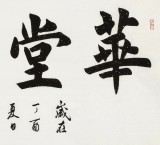 華堂
歲在
丁酉
夏日